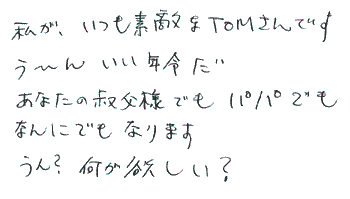 私が、いつも素敵なTOMさんです
う〜ん いい年令だ
あなたの叔父様でも パパでも
なんにでも なります
うん？ 何が欲しい？